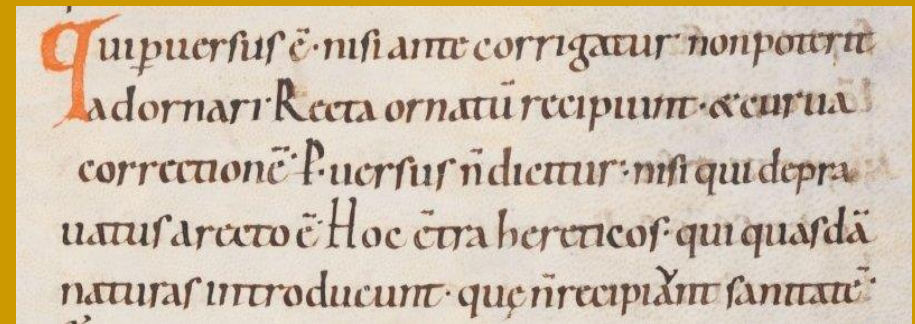 Qui ꝑuersus ē· nisi ante corrigatur non poterit
adornari· Recta ornatū recipiunt· & curua
correctionē· P·uersus n̄ dicitur· nisi qui depra
uatus a recto ē· Hoc c̄tra hereticos· qui quasdā
naturas introducunt· quę n̄ recipiant sanitatē·